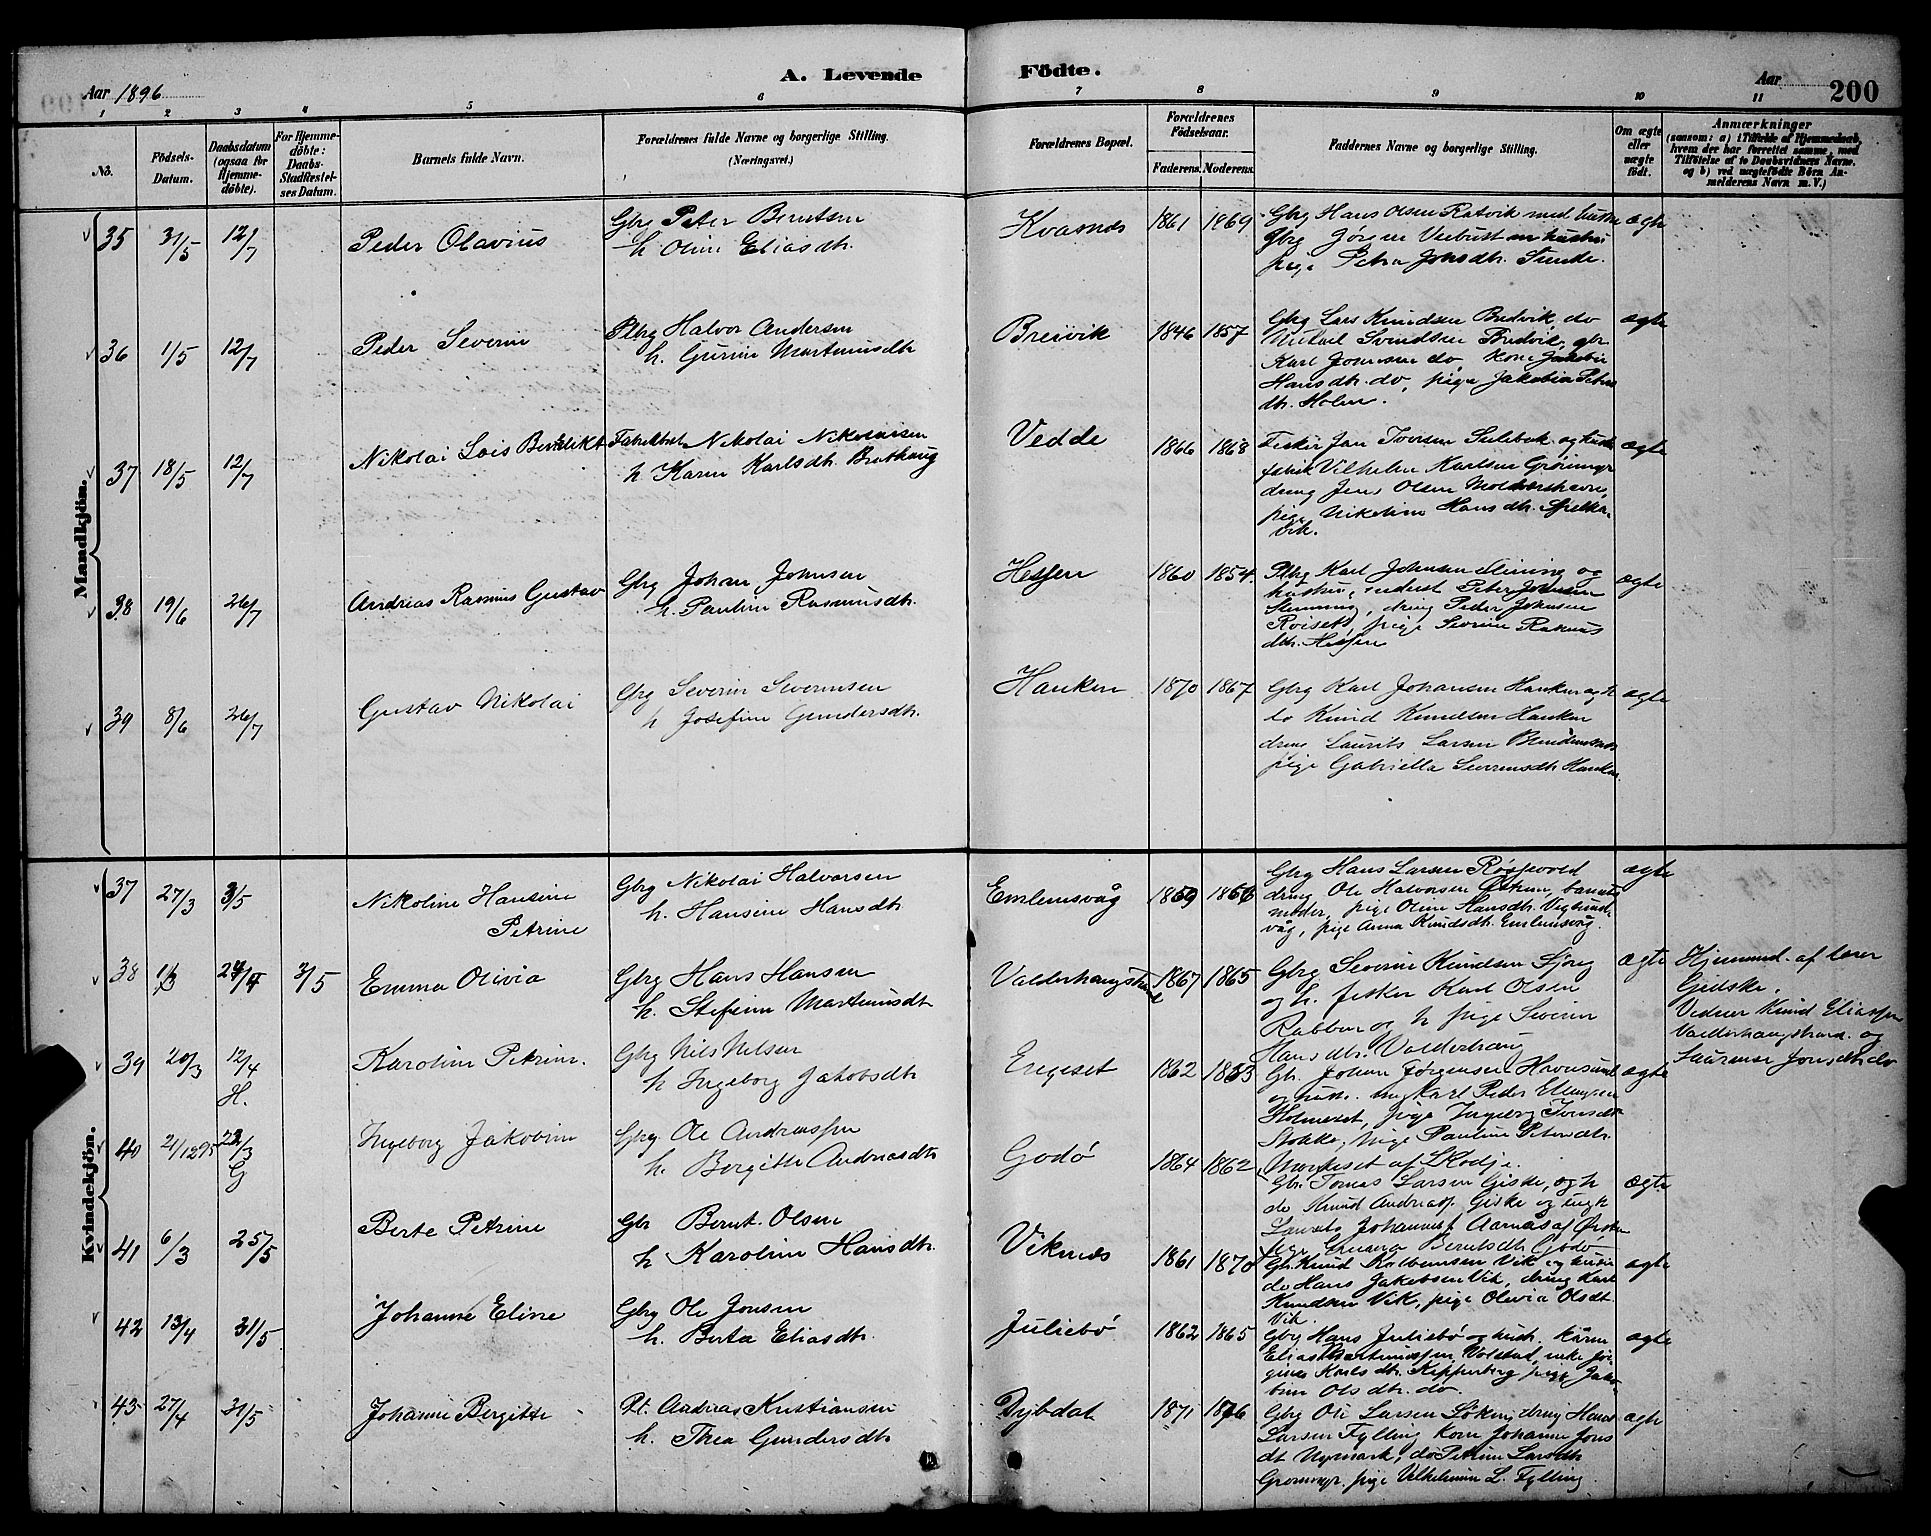 A. Levende Födte.
Aar 1896
Aar 200
1 2 3 4 5 6 7 8 9 10 11
No.
Födsels-Datum.
Daabsdatum (ogsaa for Hjemme-döbte).
For Hjemme-döbte: Daabs-Stadfæstel-ses Datum.
Barnets fulde Navn.
Forældrenes fulde Navne og borgerlige Stilling. (Næringsvei.)
Forældrenes Bopæl.
Forældrenes Födselsaar.
Faderens. Moderens.
Faddernes Navne og borgerlige Stilling.
Om ægte eller uægte født.
Anmærkninger
(saasom: a) i Tilfælde af Hjemmedaab, hvem der har forrettet samme, med Tilföielse af to Daabsvidners Navne. og b) ved uægtefödte Börn An-melderens Navn m. V.)
Mandkjön.
35 31/5 12/7 Peder Olavius
Gbrg Peter Berntsen
h. Oline Eliasdtr.
Kvasnes 1861 1869
Gbrg Hans Olsen Ratvik med hustru
Gbrg Jørgen Veibust m hustru
pige Petra Johsdtr. Sunde.
ægte
36 1/5 12/7 Peder Severin
Plbrg Halvor Andersen
h. Gurine Martinusdtr
Breivik 1846 1857
Gbrg Lars Knudsen Bredvik, do
Karl Johnsen do, kone
Hansdtr. do, pige Jakobine Peters
dtr. Holen.
ægte
37 18/5 12/7 Nikolai Lois Benedikt
Nikolai Nikolaisen
h Karen Karlsdtr.
Vedde 1866 1868
Fisker og hustru
Vilhelm Karlsen
dreng Jens Olsen Moldværshavn,
pige Nikoline Hansdtr. Spelka-
vik.
ægte
38 19/6 26/7 Andreas Rasmus Gustav
Gbrg Johan Johnsen
h. Pauline Rasmusdtr.
Hessen 1860 1854
Plbrg Karl Johnsen og
hustru, Peter Johnsen
Slemming, dreng Peder Johnsen
Roiseth, pige Severine Rasmus
dtr. Hessen
ægte
39 8/6 26/7 Gustav Nikolai
Gbrg Severin Severinsen
h Josefine Gundersdtr.
Hanken 1870 1867
Gbrg Karl Johansen Hanken og h
do Knud Knudsen Hanken
dreng Laurits Larsen
pige Gabriella Severinsdtr Hanken
ægte
Kvindekjön.
37 27/3 3/5 Nikoline Hansine
Petrine
Gbrg Nikolai Halvorsen
h. Hansine Hansdtr
Emlemsvåg 1859 1856
Gbrg Hans Larsen Røsvold
dreng Ole Halvorsen barnets
moder, pige Oline Hansdtr. Vegsund-
våg, pige Anna Knudsdtr. Emlemsvåg.
ægte
38 1/3 3/5 Emma Olivia
Gbrg Hans Hansen
h. Stefine Martinusdtr
Valderhaugstrand 1867 1865
Gbrg Severin Knudsen
og h. fisker Karl Olsen
Rabben og h pige Severine
Hansdtr. Valderhaug
ægte
Hjemmed. af lærer
Gidske.
Vidner Knud Eliassen
Valderhaugstrand og
Jonsdtr do
39 20/3 12/4 H. Karoline Petrine.
Gbrg Nils Nilsen
h Ingeborg Jakobsdtr
Engeset 1862 1863
Gbr. Johan Jørgensen
og hustr. ungkarl Peder Ellingsen
Holmeset, pige Ingeborg Ionsdtr
Stokke, pige Pauline Petersdtr.
af Skodje.
ægte
40 21/12 95 22/3 G Ingeborg Jakobine
Gbrg. Ole Andreassen
h. Bergitte Andreasdtr
Godø 1864 1862
Gbr. Tomas Larsen Giske, og h
do Knud Andreass. Giske og ungk
Laurits Johanness Aarnæs af Ørsken
pige Berntsdtr Godø
ægte
41 6/3 25/5 Berte Petrine
Gbr Bernt Olsen
h Karoline Hansdtr.
Viknes 1861 1870
Gbr. Knud Kolbensen Vik og hustru
do Hans Jakobsen Vik, dreng Karl
Knudsen Vik, pige Olivia Olsdt.
Vik.
ægte
42 13/4 31/5 Johanne Eline
Gbrg Ole Jonsen
h. Berta Eliasdtr.
Juliebø 1862 1865
Gbrg Hans Juliebø og hustr.
Elias Martinussen Volstad, enke
Karlsdtr. Kipperberg pige Jako-
bine Olsdtr. do.
ægte
43 27/4 31/5 Johanne Bergitte
Pl. Andreas Kristiansen
h. Thea Gundersdtr
Dybdal 1871 1876
Gbrg Ole Larsen dreng Hans
Larsen Fylling kone Johanne Jons
dt Nymark, do Petrine Larsdtr
pige Vilhelmine L. Fylling.
ægte